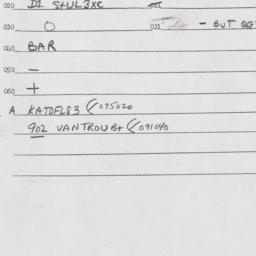 020 D1 SHUL3XC 031
030 O 031 - BUT
040 BAR
050 -
060 +
A KATOFL83 095020
902 VANTROUB+ 091040